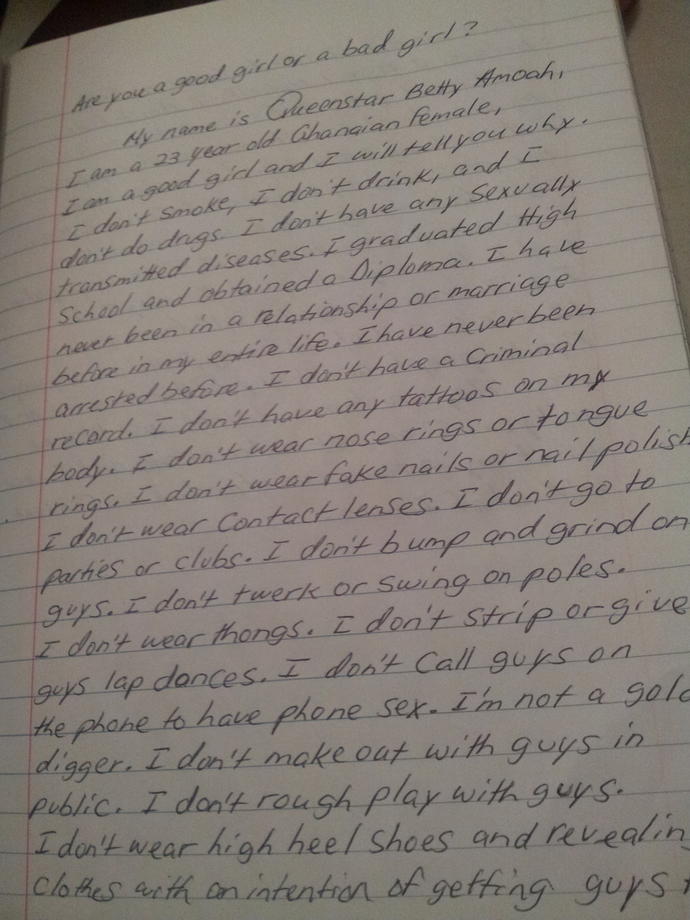 Are you a good girl or a bad girl?
My name is Queenstar Betty Amoah,
I am a 23 year old Ghanaian female,
I am a good girl and I will tell you why.
I don't smoke, I don't drink, and I
don't do drugs. I don't have any sexually
transmitted diseases. I graduated High
School and obtained a Diploma. I have
never been in a relationship or marriage
before in my entire life. I have never been
arrested before. I don't have a Criminal
record. I don't have any tattoos on my
body. I don't wear nose rings or tongue
rings. I don't wear fake nails or nail polish
I don't wear Contact lenses. I don't go to
parties or clubs. I don't bump and grind on
guys. I don't twerk or swing on poles.
I don't wear thongs. I don't strip or give
guys lap dances. I don't Call guys on
the phone to have phone sex. I'm not a gold
digger. I don't make out with guys in
public. I don't rough play with guys.
I don't wear high heel shoes and revealin
Clothes with an intention of getting guys